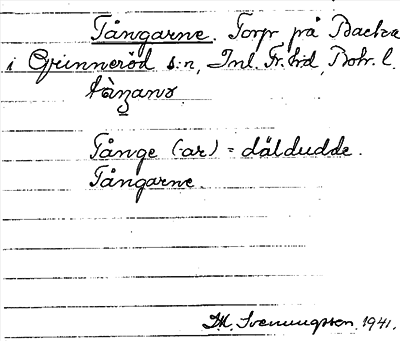 Tångarne. Torp på Backa
i Grinneröd s:n, Inl. Fr. hd, Boh. l.
tàŋanə
Tånge (-ar) = däldudde.
Tångarne.
M. Svenungsson. 1941.